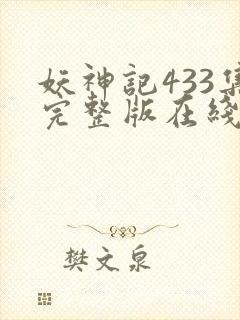 妖神記433集
完整版在綫
樊文泉